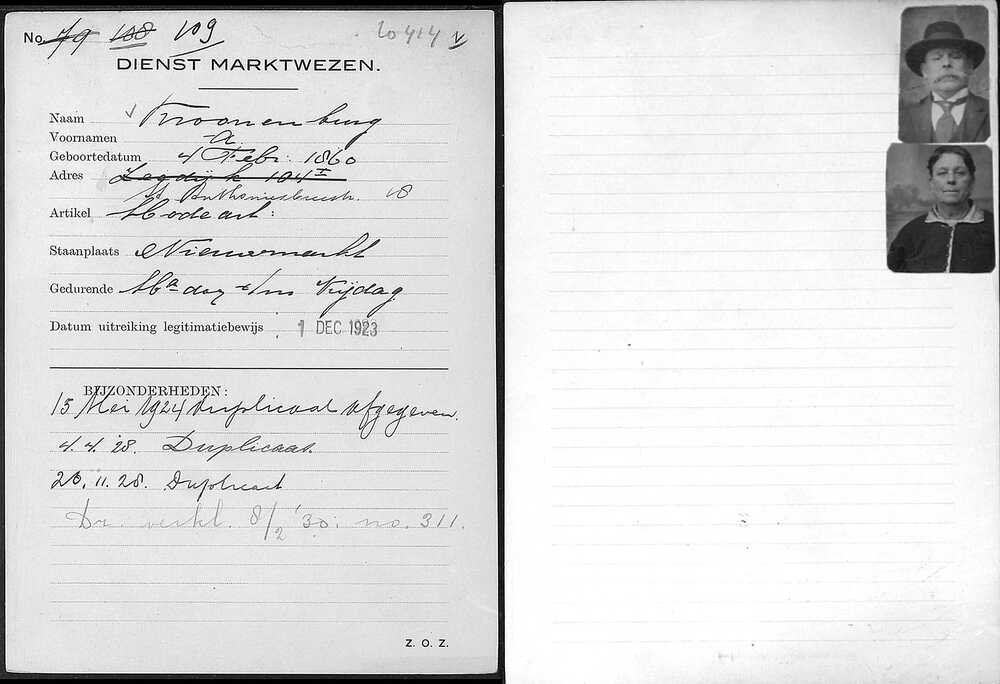 No. 79 108 109 20414 V
DIENST MARKTWEZEN.
Naam Kroonenburg
Voornamen A
Geboortedatum 4 Febr. 1860
Adres Zeedijk 104 I
St Anthoniesbreestr. 18
Artikel Modeart:
Staanplaats Nieuwmarkt
Gedurende Maandag t/m Vrijdag
Datum uitreiking legitimatiebewijs 1 DEC 1923
BIJZONDERHEDEN:
15 Mei 1924 Duplicaat afgegeven.
4.4.'28. Duplicaat.
26.11.28. Duplicaat
Dr. verkl. 8/2 '30. no. 311.
Z. O. Z.